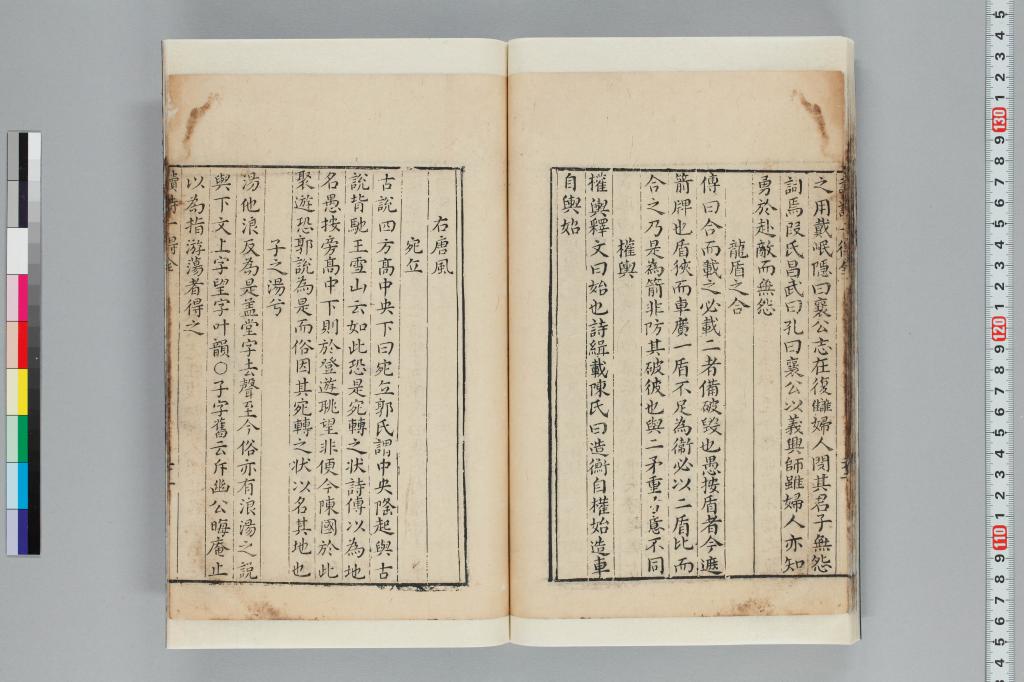 之用戴岷隱曰襄公志在復讎婦人閔其君子無怨
詞焉段氏昌武曰孔曰襄公以義興師雖婦人亦知
勇於赴敵而無怨
龍盾之合
傳曰合而載之必載二者備破毀也愚按盾者今遮
箭牌也盾狹而車廣一盾不足為衞必以二盾比而
合之乃是為箭非防其破彼也與二矛重弓意不同
權輿
權輿釋文曰始也詩緝載陳氏曰造衡自權始造車
自輿始
右唐風
宛丘
古說四方高中央下曰宛丘郭氏謂中央隆起與古
說背馳王雪山云如此恐是宛轉之状詩傳以為地
名愚按旁高中下則於登遊眺望非便今陳國於此
聚遊恐郭說為是而俗因其宛轉之状以名其地也
子之湯兮
湯他浪反為是盖堂字去聲至今俗亦有浪湯之說
與下文上字望字叶韻○子字舊云斥幽公晦庵止
以為指游蕩者得之
讀詩一得全